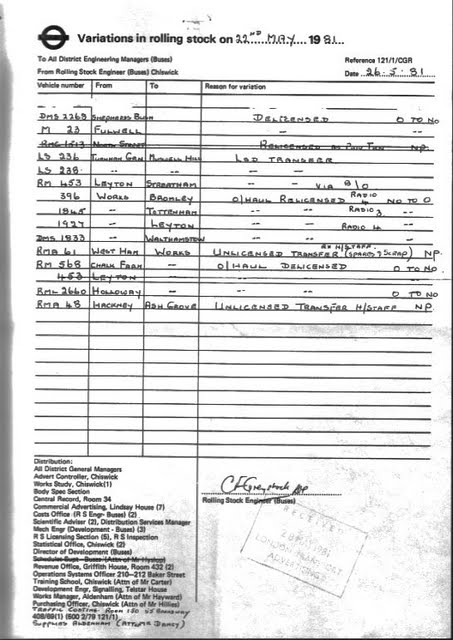 Variations in rolling stock on 22ND MAY 1981.
To All District Engineering Managers (Buses) Reference 121/1/CGR
From Rolling Stock Engineer (Buses) Chiswick Date 26.5.81
Vehicle number From To Reason for variation
DMS 2269 SHEPHERDS BUSH DELICENSED O TO NO
M 23 FULWELL -- --
RMC 1513 NORTH STREET RELICENSED NP.
LS 236 TURNHAM GRN MUSWELL HILL LSD TRANSFER
LS 238 -- -- --
RM 453 LEYTON STREATHAM -- VIA O/O
396 WORKS BROMLEY O/HAUL RELICENSED RADIO 4 NO TO O
1845 -- TOTTENHAM -- -- RADIO 3 --
1927 -- LEYTON -- -- RADIO 4 --
DMS 1833 -- WALTHAMSTOW -- -- --
RMA 61 WEST HAM WORKS UNLICENSED TRANSFER EX H/STAFF (SPARES & SCRAP) NP.
RM 568 CHALK FARM -- O/HAUL DELICENSED O TO NO.
453 LEYTON -- -- --
RML 2660 HOLLOWAY -- -- -- O TO NO
RMA 48 HACKNEY ASH GROVE UNLICENSED TRANSFER H/STAFF NP.
Distribution:
All District General Managers
Advert Controller, Chiswick
Works Study, Chiswick(1)
Body Spec Section
Central Record, Room 34
Commercial Advertising, Lindsay House (7)
Costs Office (R S Engr- Buses) (2)
Scientific Adviser (2), Distribution Services Manager
Mech Engr (Development - Buses) (3)
R S Licensing Section (5), R S Inspection
Statistical Office, Chiswick (2)
Director of Development (Buses)
Schedules Supt - Buses (Attn of Mr Hynton)
Revenue Office, Griffith House, Room 432 (2)
Operations Systems Officer 210-212 Baker Street
Training School, Chiswick (Attn of Mr Carter)
Development Engr, Signalling, Telstar House
Works Manager, Aldenham (Attn of Mr Hayward)
Purchasing Officer, Chiswick (Attn of Mr Hillies)
TRAFFIC COSTING ROOM 150 55 BROADWAY
408/69(1) (600 2/79 121/1)
SUPPLIES ALDENHAM (ATT. MR DANCY)
Rolling Stock Engineer (Buses)
RECEIVED
1981
LONDON TRANSPORT
ADVERTISING